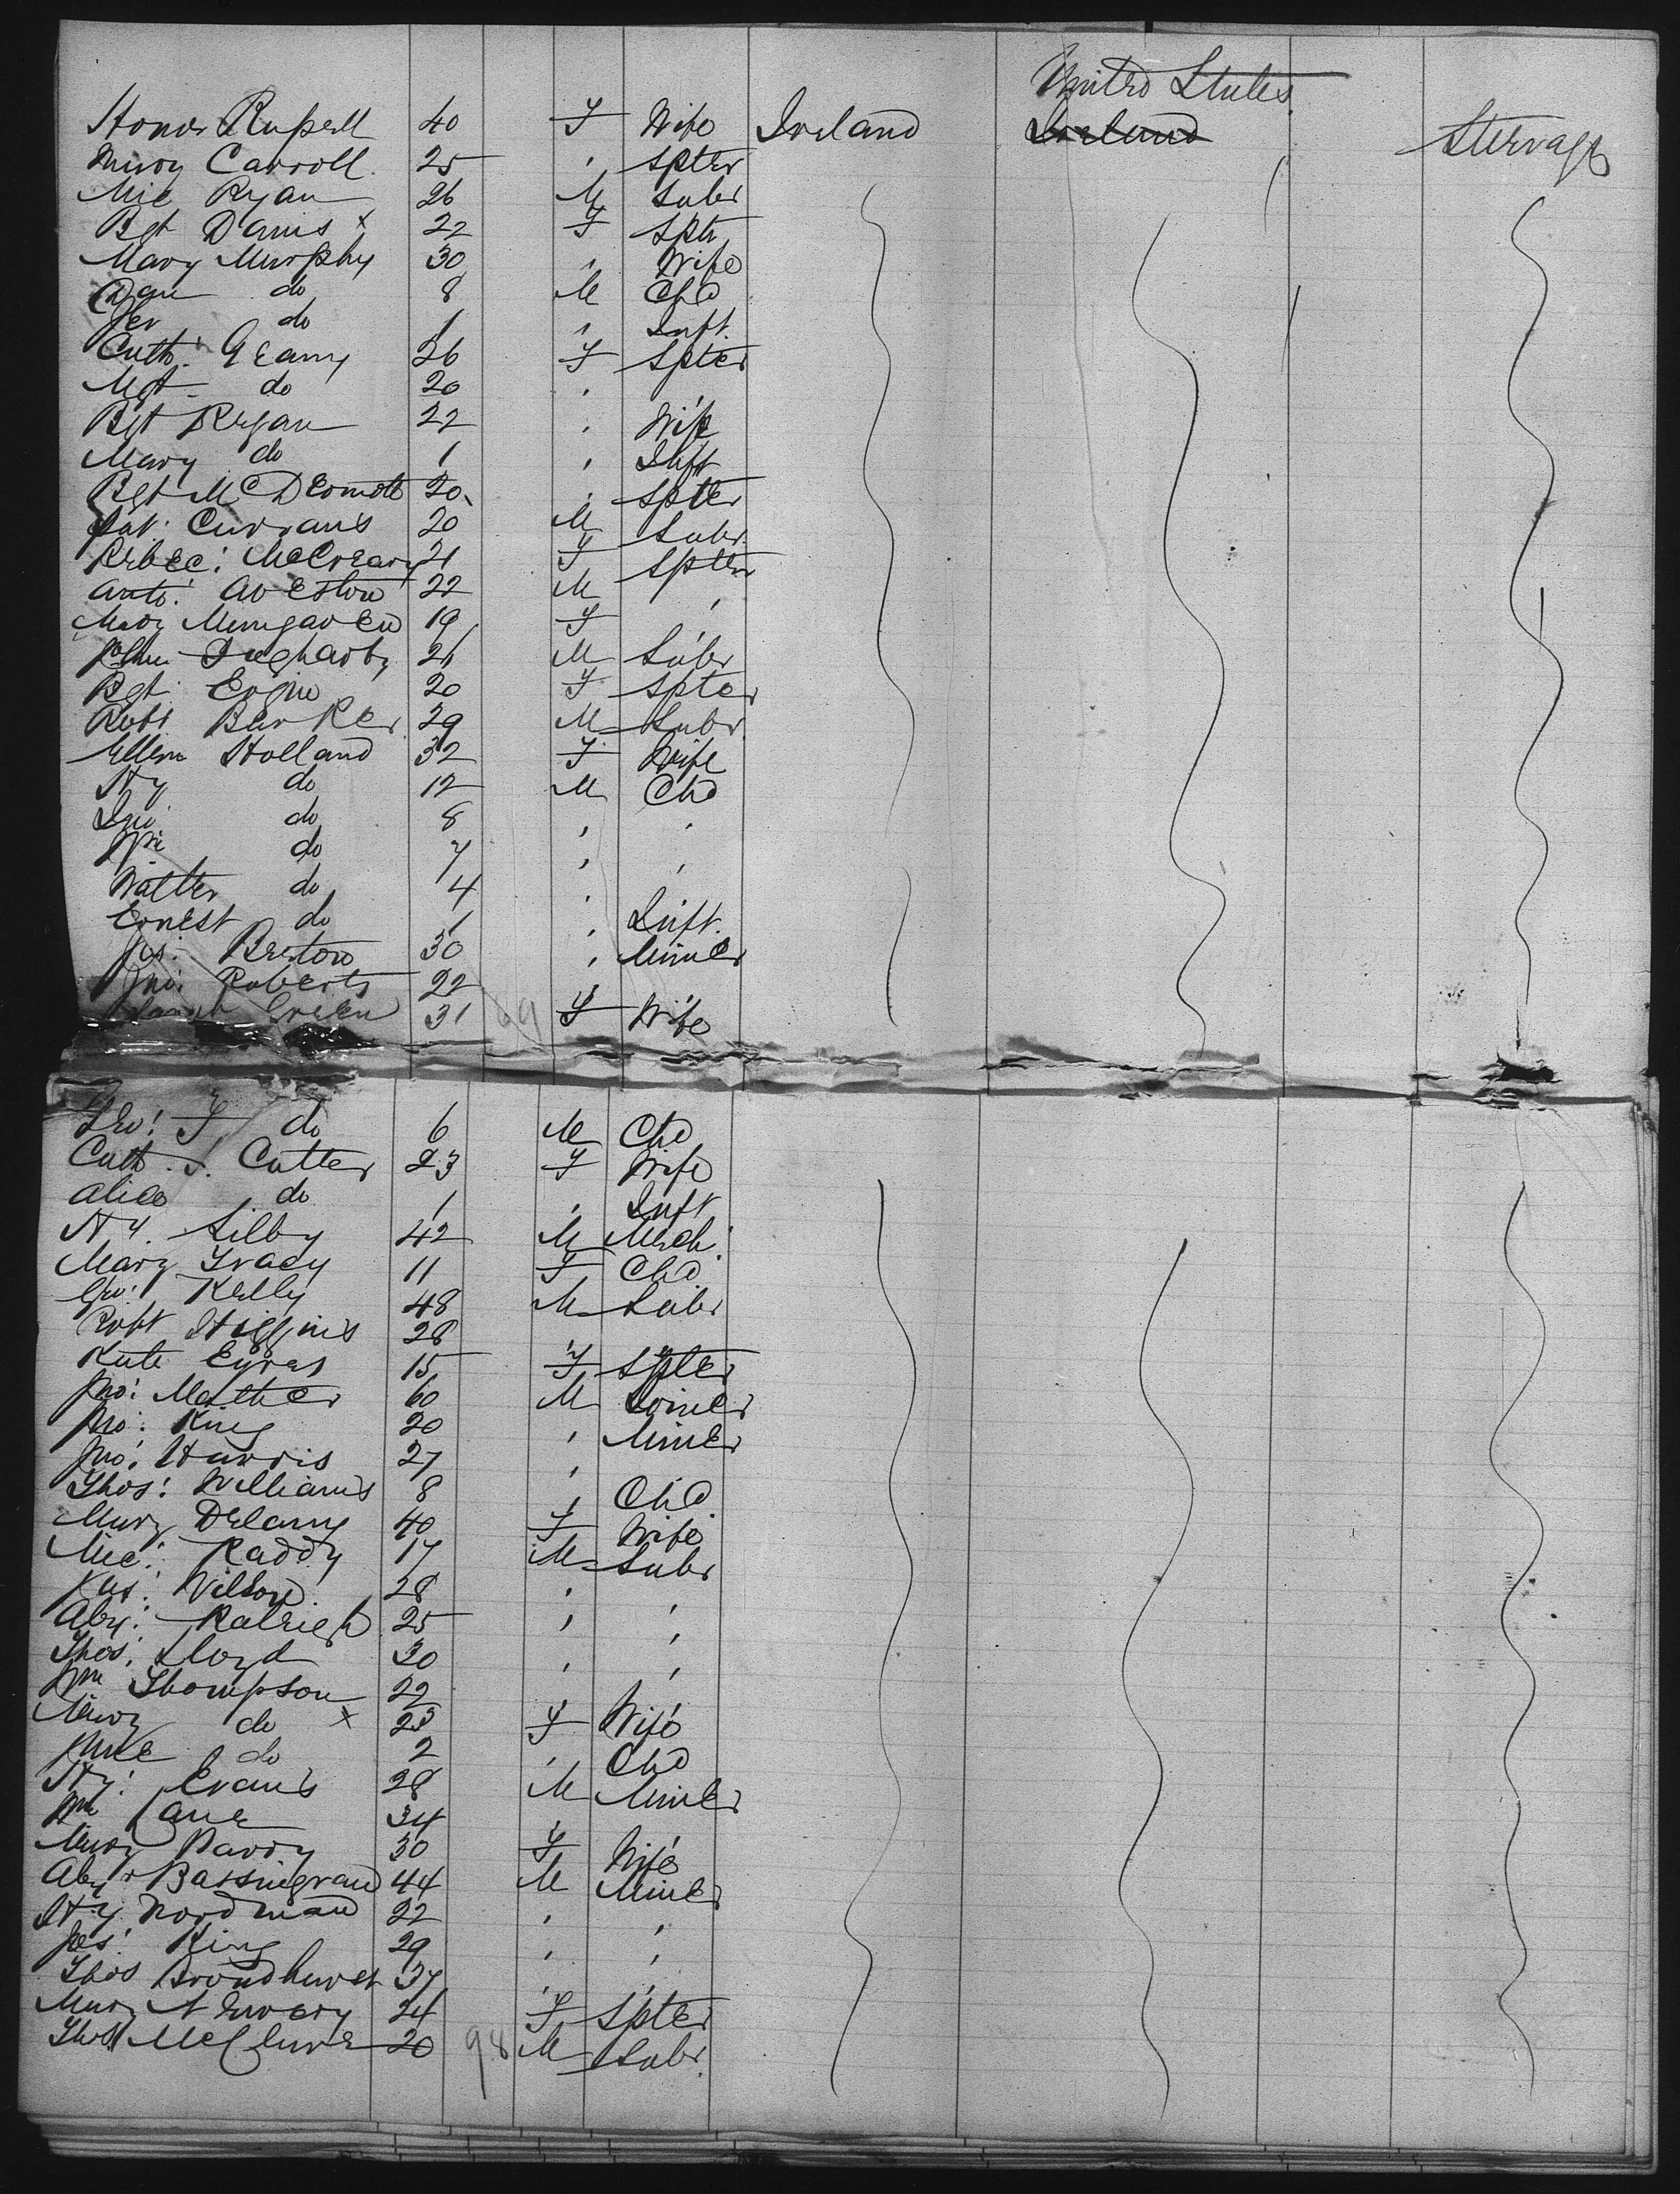 United States
Honor Russell 40 F Wife Ireland Ireland Steerage
Mary Carroll 25 " Spter
Mic Ryan 26 M Labr
Bgt Danis x 22 F Sptr
Mary Murphy 30 " Wife
Dan do 8 M Chd
Jer do 1 " Inft
Cath: Geany 26 F Spter
Mgt do 20 "
Bgt Regan 22 " Wife
Mary do 1 " Inft
Bgt McDermott 20 " Spter
Pat: Currans 20 M Labr
Rebec: McCreary 21 F Spter
Anto: 22 M "
Mary Mungaven 19 F
John 26 M Labr
Bgt 20 F Spter
Robt Barker 29 M Labr
Ellen Holland 32 F Wife
Hy do 12 M Chd
do 8 " "
Wm do 7 " "
Walter do 4 "
Ernest do 1 " Inft
Jas: Breton 30 " Miner
Jno: Roberts 22
Sarah Green 31 F Wife
Geo: F do 6 M Chd
Cath. J. Cutter 23 F Wife
Alice do 1 " Inft
Hy. Silby 42 M Mech.
Mary Grady 11 F Chd
Geo: Kelly 48 M Labr
Robt Higgins 28
Kate Eyres 15 F Spter
Jno: Mather 60 M Joiner
Jno: King 20 " Miner
Jno: Harris 27 "
Thos: Williams 8 " Chd
Mary Delany 40 F Wife
Mic: Raddy 17 M Labr
Jas: Wilson 28 "
Alex: Raleigh 25 " "
Thos: Lloyd 30 " "
Wm Thompson 22
Mary do x 23 F Wife
Jane do 2 " Chd
Hy: Evans 28 M Miner
Wm Cane 34
Mary Parry 30 F Wife
Alexr Bassingrand 44 M Miner
Hy Nordman 22 " "
Jas: King 29 " "
Thos Broadhurst 37 " "
Mary Newery 24 F Spter
Thos McClure 20 98 M Labr.